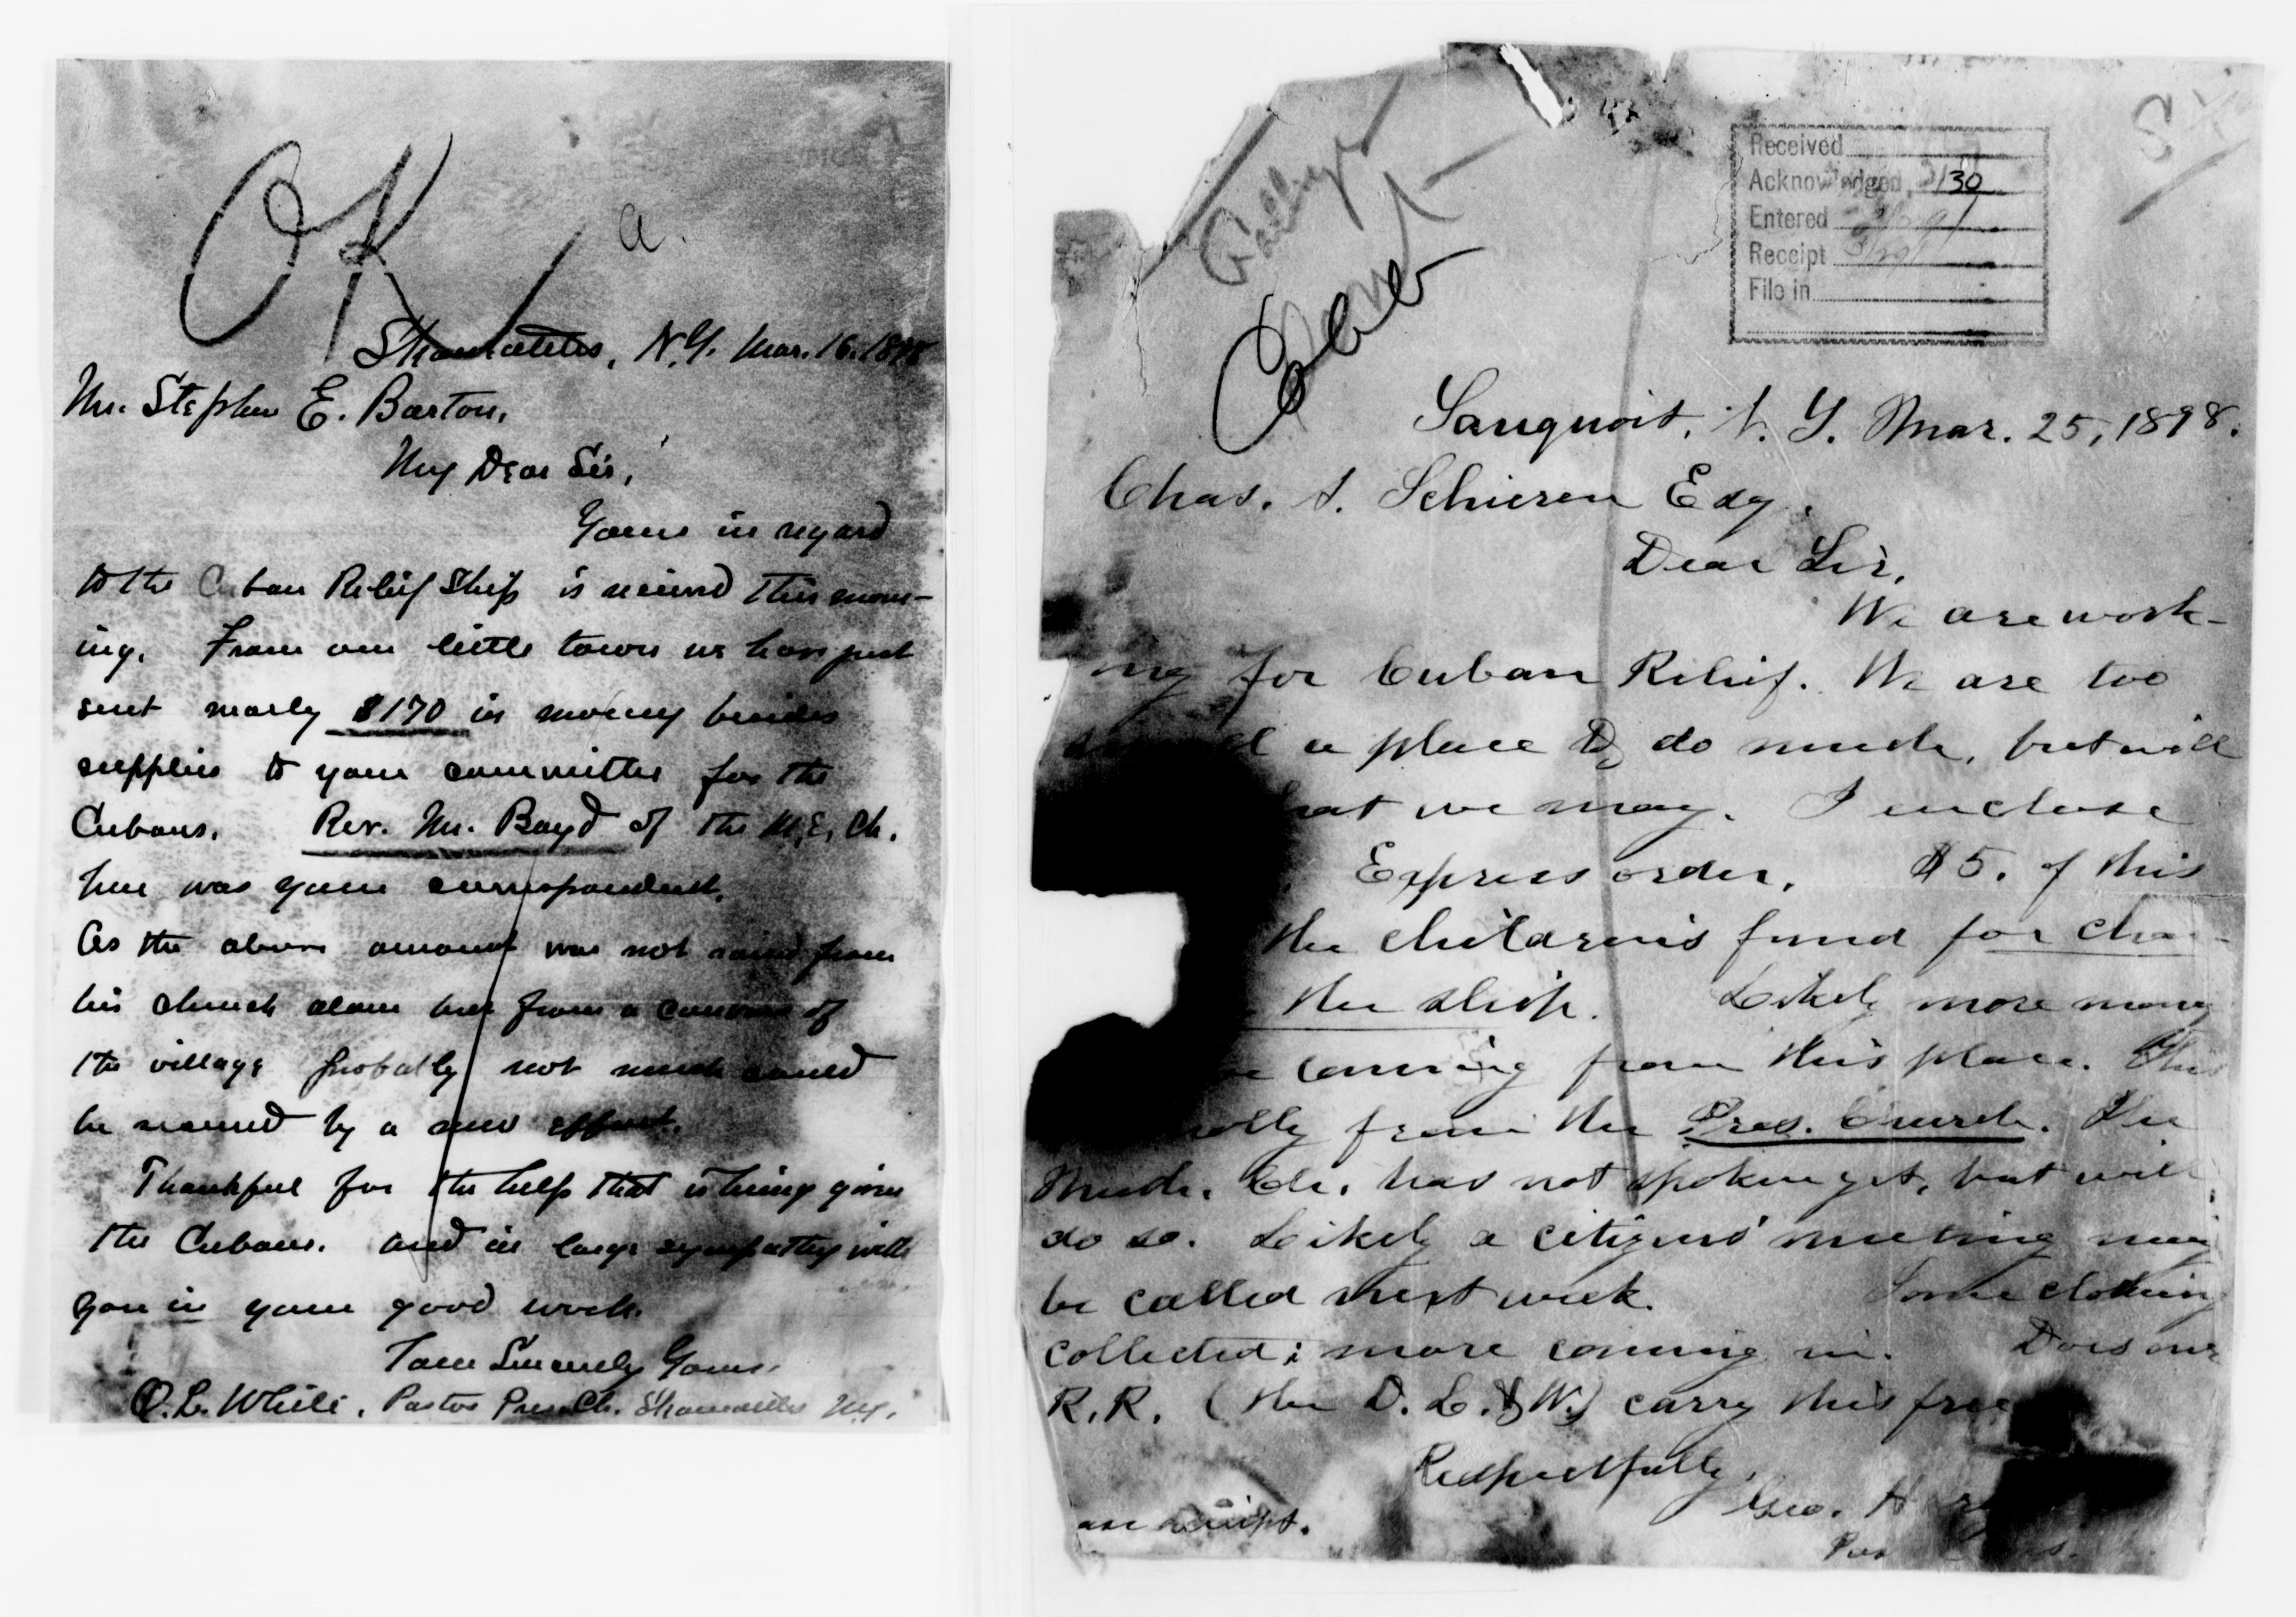 OK
a.
Skaneateles, N.Y. Mar. 16. 1898
Mr. Stephen E. Barton,
My Dear Sir,
Yours in regard
to the Cuban Relief Ship is received this morn-
ing. From our little town we have just
sent nearly $170 in money besides
supplies to your committee for the
Cubans. Rev. Mr. Boyd of the M.E. Ch.
here was your correspondent.
As the above amount was not raised from
his church alone but from a canvass of
the village probably not much could
be secured by a new effort.
Thankful for the help that is being given
the Cubans. and in large sympathy with
you in your good work.
I am Sincerely Yours,
O.L. White, Pastor Pres. Ch. Skaneateles N.Y.
Received
Acknowledged 3/30
Entered
Receipt 3/29
File in
Sauquoit, N. Y. Mar. 25, 1898.
Chas. A. Schieren Esq.
Dear Sir,
We are work-
ing for Cuban Relief. We are too
small a place to do much, but will
hat we may. I enclose
Express order. $5. of this
the children's fund for char-
the ship. Likely more money
e coming from this place. This
olly from the Pres. Church. The
Meth. Ch. has not spoken yet, but will
do so. Likely a citizens' meeting may
be called next week. Some clothing
collected; more coming in. Does our
R.R. (the D. L. & W.) carry this free
Respectfully,
Geo. H
receipt.